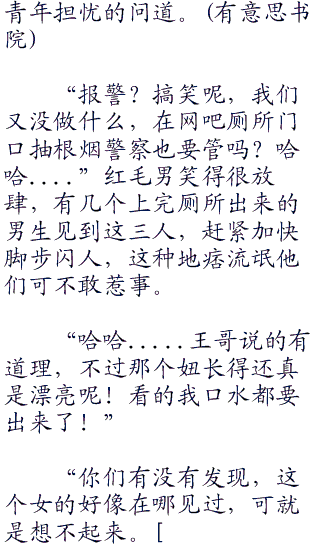 青年担忧的问道。(有意思书
院)
“报警？搞笑呢，我们
又没做什么，在网吧厕所门
口抽根烟警察也要管吗？哈
哈....”红毛男笑得很放
肆，有几个上完厕所出来的
男生见到这三人，赶紧加快
脚步闪人，这种地痞流氓他
们可不敢惹事。
“哈哈.....王哥说的有
道理，不过那个妞长得还真
是漂亮呢！看的我口水都要
出来了！”
“你们有没有发现，这
个女的好像在哪见过，可就
是想不起来。[